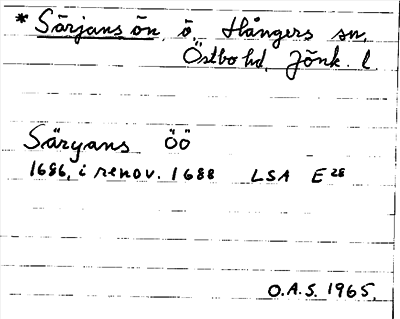 * Särjans ön, ö, Hångers sn,
Östbo hd, Jönk. l.
Säryans öö
1686, i renov. 1688 LSA E 28
O.A.S. 1965.